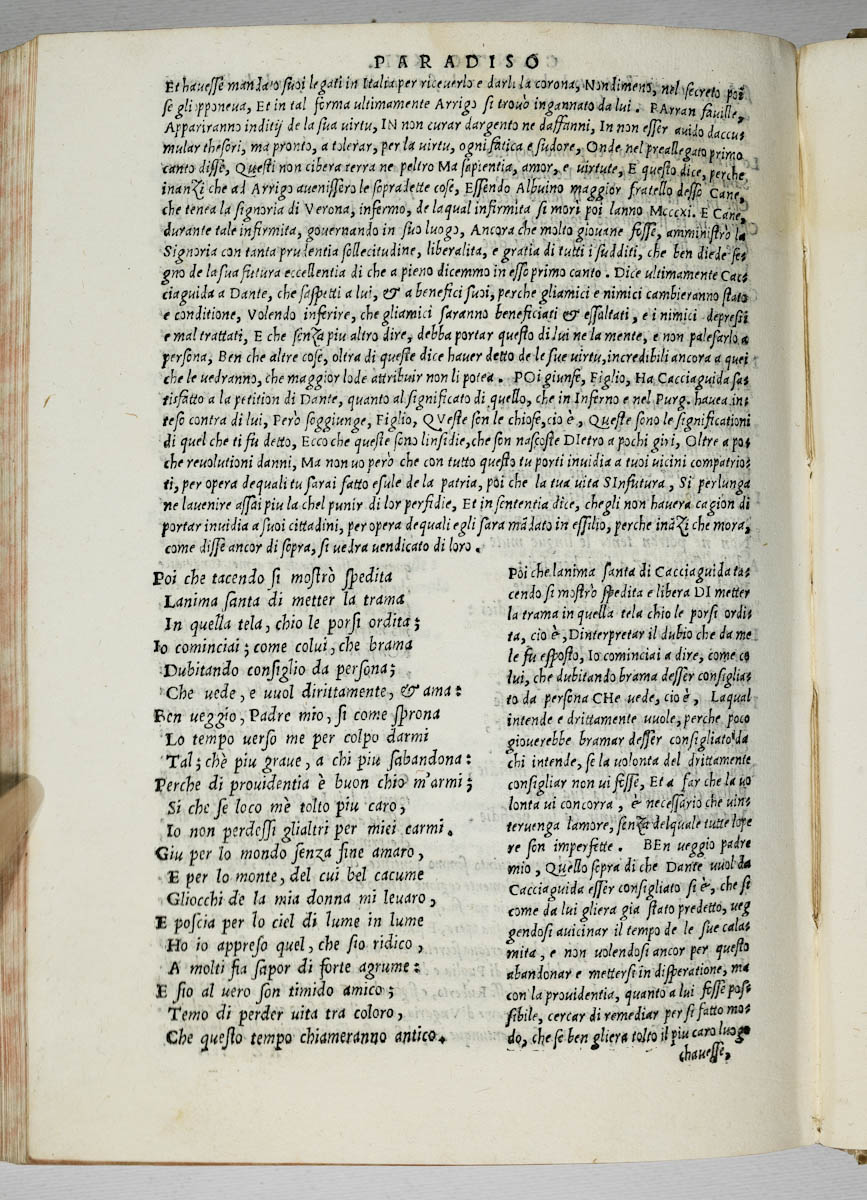 PARADISO
Et havesse mandato suoi legati in Italia per riceverlo e darli la corona, Nondimeno, nel secreto poi
se gli opponeva, Et in tal forma ultimamente Arrigo si trovò ingannato da lui. PArran faville,
Appariranno inditij de la sua virtu, IN non curar dargento ne daffanni, In non esser avido daccu⸗
mular thesori, ma pronto, a tolerar, per la virtu, ogni fatica e sudore, Onde nel preallegato primo
canto disse, Questi non cibera terra ne peltro Ma sapientia, amor, e virtute, E questo dice, perche
inanzi che ad Arrigo avenissero le sopradette cose, Essendo Albuino maggior fratello desso Cane,
che tenea la signoria di Verona, infermo, de laqual infirmita si mori poi lanno Mcccxi. E Cane,
durante tale infirmita, governando in suo luogo, Ancora che molto giovane fosse, amministrò la
Signoria con tanta prudentia sollecitudine, liberalita, e gratia di tutti i sudditi, che ben diede se⸗
gno de la sua futura eccellentia di che a pieno dicemmo in esso primo canto. Dice ultimamente Cac⸗
ciaguida a Dante, che saspetti a lui, & a benefici suoi, perche gliamici e nimici cambieranno stato
e conditione, Volendo inferire, che gliamici saranno beneficiati & essaltati, e i nimici depressi
e mal trattati, E che senza piu altro dire, debba portar questo di lui ne la mente, e non palesarlo a
persona, Ben che altre cose, oltra di queste dice haver detto de le sue virtu, incredibili ancora a quei
che le vedranno, che maggior lode attribuir non li potea. POi giunse, Figlio, Ha Cacciaguida sa⸗
tisfatto a la petition di Dante, quanto al significato di quello, che in Inferno e nel Purg. havea in⸗
teso contra di lui, Però soggiunge, Figlio, QVeste son le chiose, cio è, Queste sono le significationi
di quel che ti fu detto, Ecco che queste sono linsidie, che son nascoste DIetro a pochi giri, Oltre a po⸗
che revolutioni danni, Ma non vo però che con tutto questo tu porti invidia a tuoi vicini compatrio⸗
ti, per opera dequali tu sarai fatto esule de la patria, poi che la tua vita SInfutura, Si perlunga
ne lavenire assai piu la chel punir di lor perfidie, Et in sententia dice, chegli non havera cagion di
portar invidia a suoi cittadini, per opera dequali egli sara mādato in essilio, perche ināzi che mora,
come disse ancor di sopra, si vedra vendicato di loro.
Poi che tacendo si mostrò spedita
Lanima santa di metter la trama
In quella tela, chio le porsi ordita;
Io cominciai; come colui, che brama
Dubitando consiglio da persona;
Che vede, e vuol dirittamente, & ama:
Ben veggio, Padre mio, si come sprona
Lo tempo verso me per colpo darmi
Tal; chè piu grave, a chi piu sabandona:
Perche di providentia è buon chio m'armi;
Si che se loco mè tolto piu caro,
Io non perdessi glialtri per miei carmi.
Giu per lo mondo senza fine amaro,
E per lo monte, del cui bel cacume
Gliocchi de la mia donna mi levaro,
E poscia per lo ciel di lume in lume
Ho io appreso quel, che sio ridico,
A molti fia sapor di forte agrume:
E sio al vero son timido amico;
Temo di perder vita tra coloro,
Che questo tempo chiameranno antico.
Poi che lanima santa di Cacciaguida ta⸗
cendo si mostrò spedita e libera DI metter
la trama in quella tela chio le porsi ordi⸗
ta, cio è, Dinterpretar il dubio che da me
le fu esposto, Io cominciai a dire, come co
lui, che dubitando brama desser consiglia⸗
to da persona CHe vede, cio è, Laqual
intende e drittamente vuole, perche poco
gioverebbe bramar desser consigliato da
chi intende, se la volonta del drittamente
consigliar non vi fosse, Et a far che la vo
lonta vi concorra, è necessario che vin⸗
tervenga lamore, senza delquale tutte lope
re son imperfette. BEn veggio padre
mio, Quello sopra di che Dante vuol da
Cacciaguida esser consigliato si è, che si
come da lui gliera gia stato predetto, veg
gendosi avicinar il tempo de le sue cala⸗
mita, e non volendosi ancor per questo
abandonar e mettersi in disperatione, ma
con la providentia, quanto a lui fosse pos⸗
sibile, cercar di remediar per si fatto mo⸗
do, che se ben gliera tolto il piu caro luogo
chavesse,